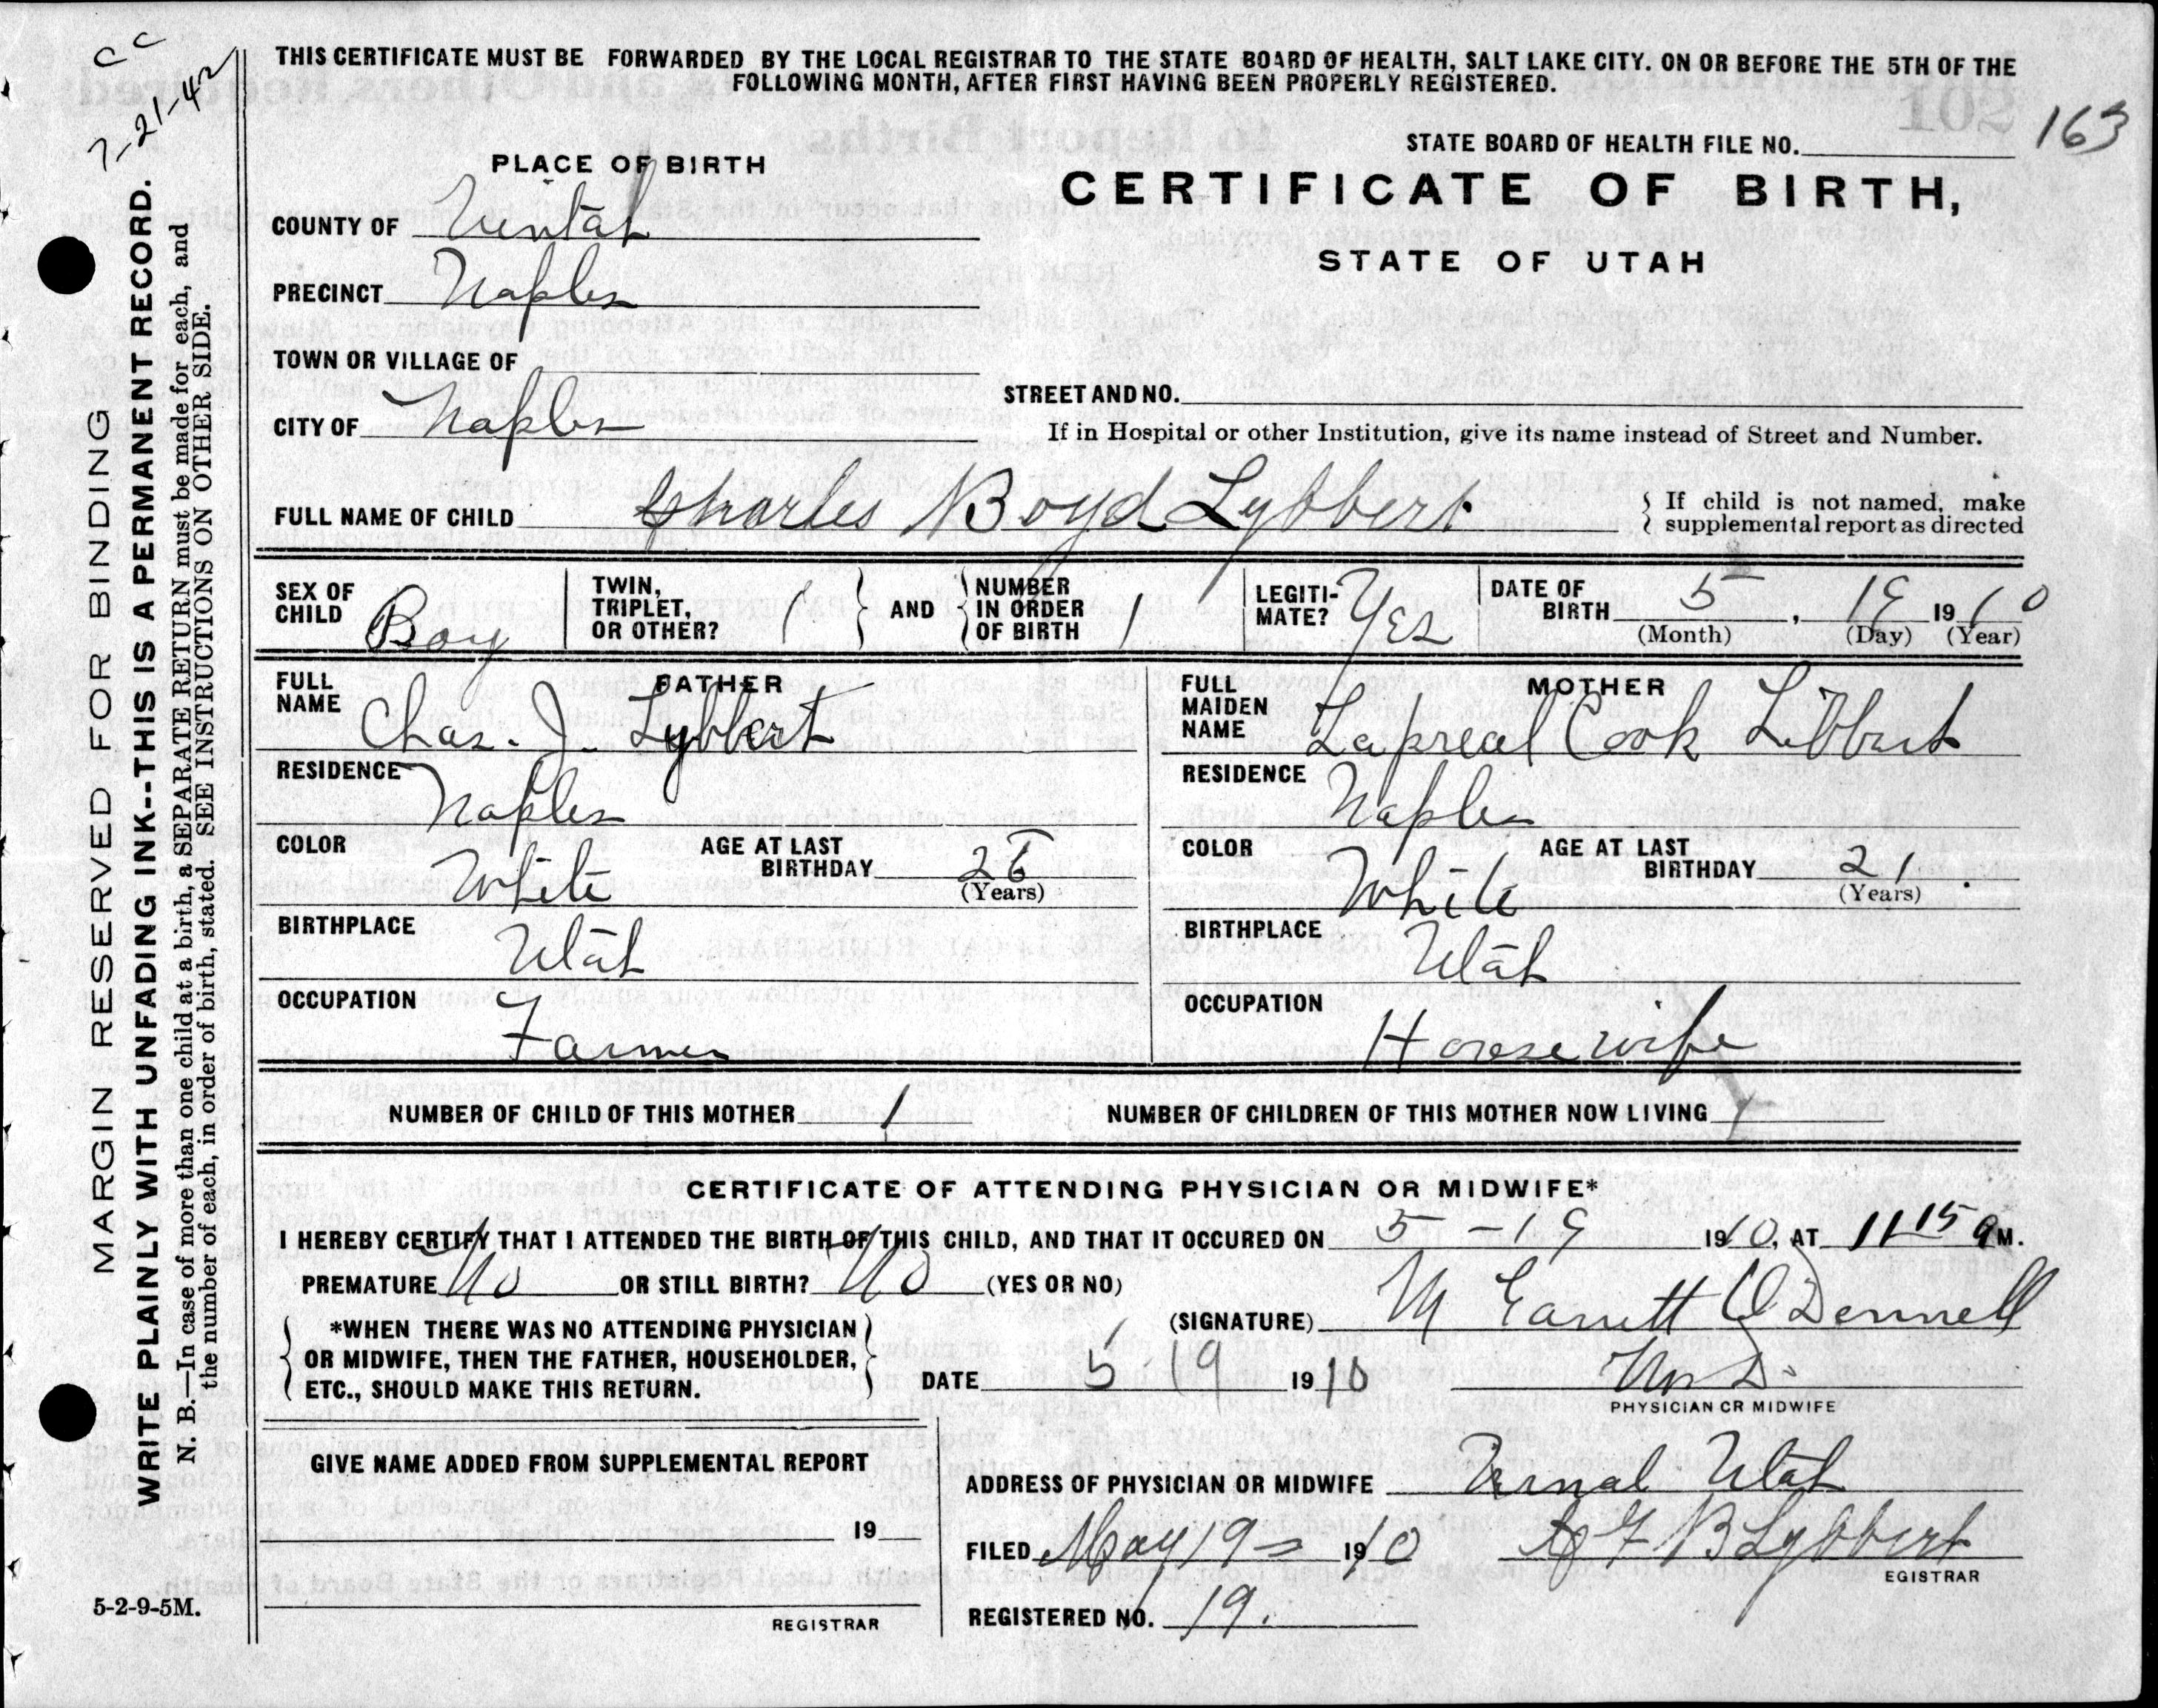 THIS CERTIFICATE MUST BE FORWARDED BY THE LOCAL REGISTRAR TO THE STATE BOARD OF HEALTH, SALT LAKE CITY. ON OR BEFORE THE 5TH OF THE
FOLLOWING MONTH, AFTER FIRST HAVING BEEN PROPERLY REGISTERED.
CC
7-21-42
102
163
STATE BOARD OF HEALTH FILE NO.
PLACE OF BIRTH
CERTIFICATE OF BIRTH,
STATE OF UTAH
COUNTY OF Uintah
PRECINCT Naples
TOWN OR VILLAGE OF
STREET AND NO.
CITY OF Naples
If in Hospital or other Institution, give its name instead of Street and Number.
FULL NAME OF CHILD Charles Boyd Lybbert
If child is not named, make
supplemental report as directed
SEX OF CHILD Boy
TWIN, TRIPLET, OR OTHER? 1
AND
NUMBER IN ORDER OF BIRTH 1
LEGITIMATE? Yes
DATE OF BIRTH 5, 19 1910
(Month) (Day) (Year)
FATHER
FULL NAME Chas. J. Lybbert
RESIDENCE Naples
COLOR White
AGE AT LAST BIRTHDAY 26
(Years)
BIRTHPLACE Utah
OCCUPATION Farmer
MOTHER
FULL MAIDEN NAME Lapreal Cook Libbert
RESIDENCE Naples
COLOR White
AGE AT LAST BIRTHDAY 21.
(Years)
BIRTHPLACE Utah
OCCUPATION Housewife
NUMBER OF CHILD OF THIS MOTHER 1
NUMBER OF CHILDREN OF THIS MOTHER NOW LIVING 1
CERTIFICATE OF ATTENDING PHYSICIAN OR MIDWIFE*
I HEREBY CERTIFY THAT I ATTENDED THE BIRTH OF THIS CHILD, AND THAT IT OCCURED ON 5-19 1910, AT 11 15 a M.
PREMATURE No OR STILL BIRTH? No (YES OR NO)
(SIGNATURE) M Garrett O'Dennell
*WHEN THERE WAS NO ATTENDING PHYSICIAN
OR MIDWIFE, THEN THE FATHER, HOUSEHOLDER,
ETC., SHOULD MAKE THIS RETURN.
DATE 5 19 1910
M D.
PHYSICIAN OR MIDWIFE
GIVE NAME ADDED FROM SUPPLEMENTAL REPORT
19
REGISTRAR
ADDRESS OF PHYSICIAN OR MIDWIFE Vernal Utah
FILED May 19 1910 B Lybbert
EGISTRAR
REGISTERED NO. 19.
5-2-9-5M.
MARGIN RESERVED FOR BINDING
WRITE PLAINLY WITH UNFADING INK--THIS IS A PERMANENT RECORD.
N. B.—In case of more than one child at a birth, a SEPARATE RETURN must be made for each, and
the number of each, in order of birth, stated. SEE INSTRUCTIONS ON OTHER SIDE.